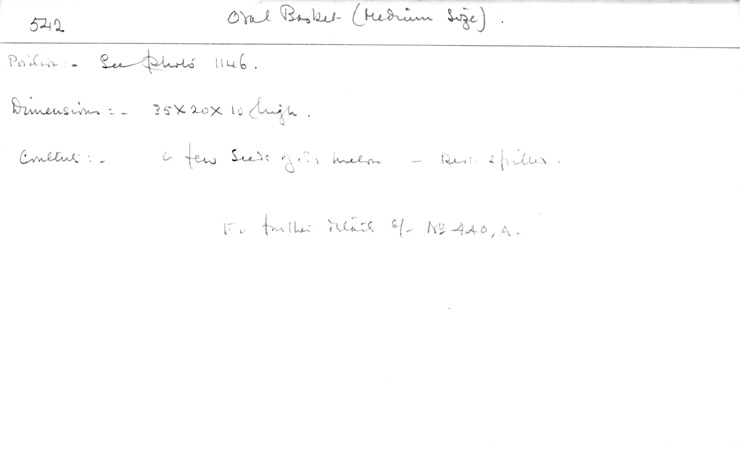 542
Oval Basket (Medium Size).
Position:- See Photo 1146.
Dimensions:- 35 X 20 X 10 high.
Contents:- a few seeds of melon - Rest spilled.
For further detail cf- No 440, A.